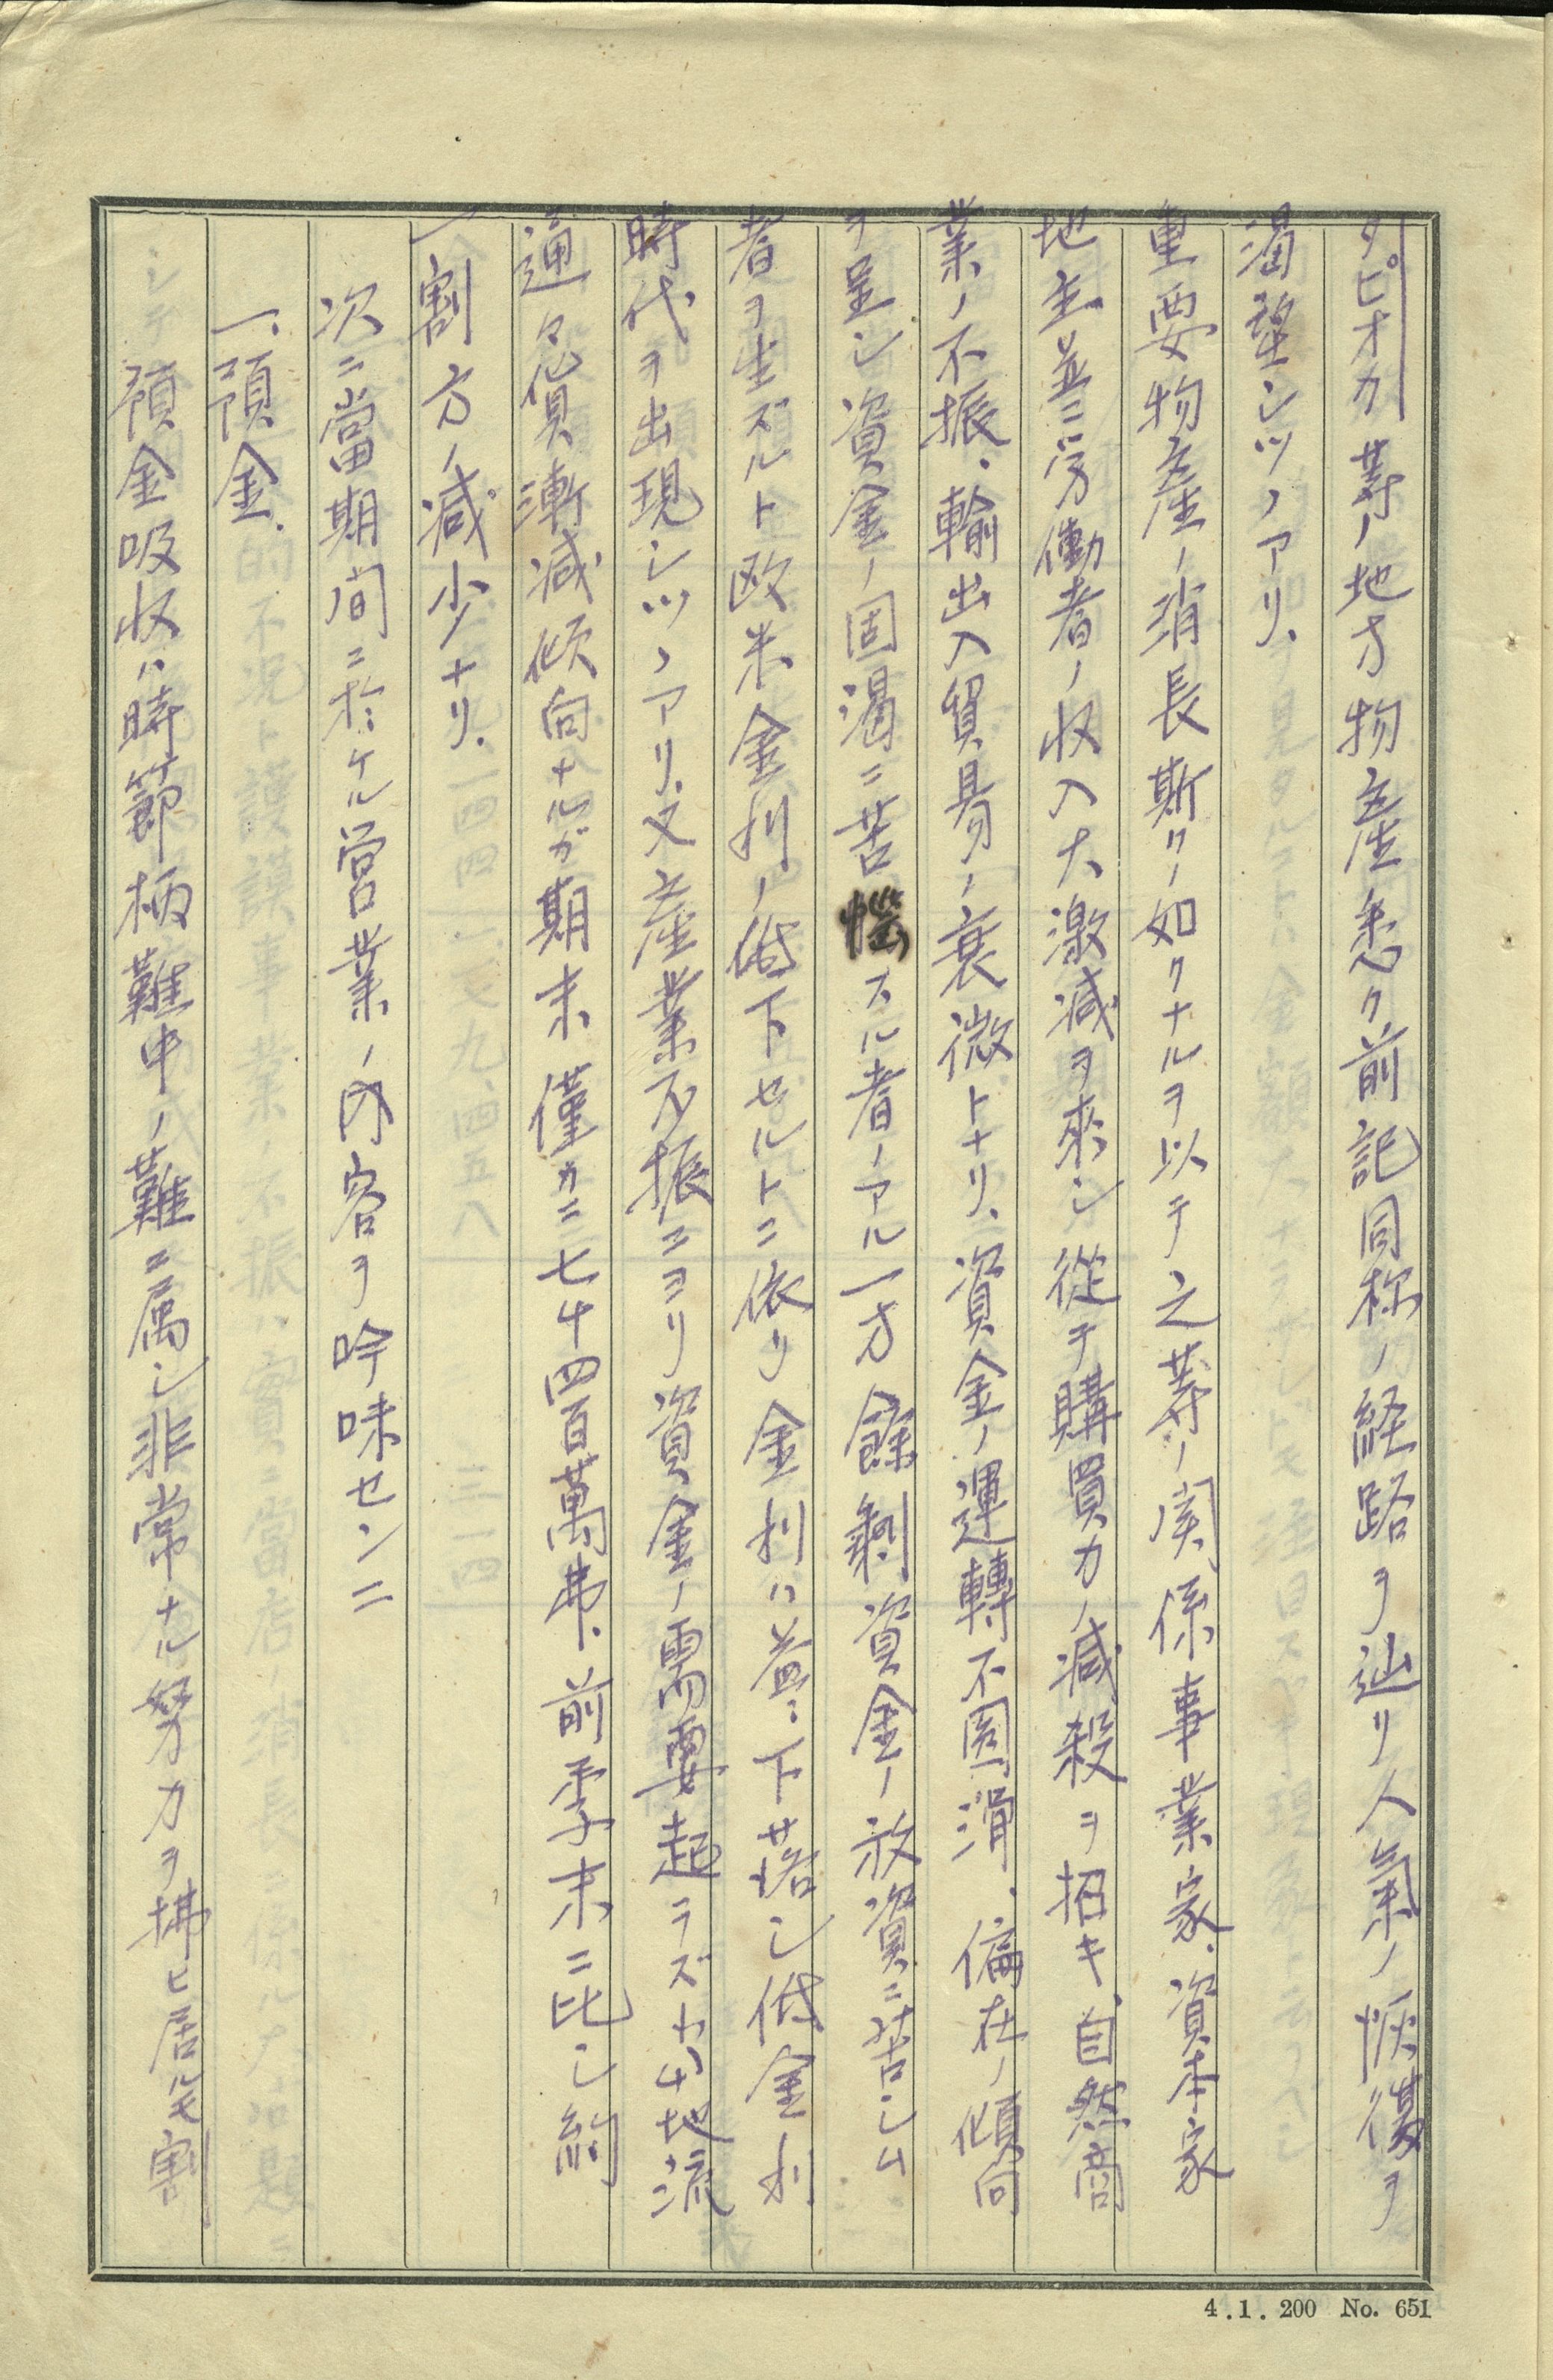 タピオカ等ノ地方物産悉ク前記同様ノ経路ヲ辿リ人氣ノ恢復ヲ
渇望シツヽアリ、
重要物産ノ消長斯クノ如クナルヲ以テ之等ノ関係事業家、資本家
地主並ニ労働者ノ収入大激減ヲ来シ従テ購買力ノ減殺ヲ招キ、自然商
業ノ不振、輸出入貿易ノ衰微トナリ、資金ノ運轉不圓滑、偏在ノ傾向
ヲ呈シ資金ノ固渇ニ苦惱スル者ノアル一方餘剰資金ノ放資ニ苦シム
者ヲ生ズルト欧米金利ノ低下セルトニ依リ金利ハ益々下落シ低金利
時代ヲ出現シツヽアリ、又産業不振ニヨリ資金ノ需要起ラズ當地流
通貨漸減傾向ナルガ期末僅カニ七千四百萬弗、前季末ニ比シ約
一割方ノ減少ナリ、
次ニ當期间ニ於ケル営業ノ内容ヲ吟味センニ
一、預金、
預金吸収ハ時節柄難中ノ難ニ属シ非常ナル努力ヲ拂ヒ居ルモ割
4.1.200 No. 651